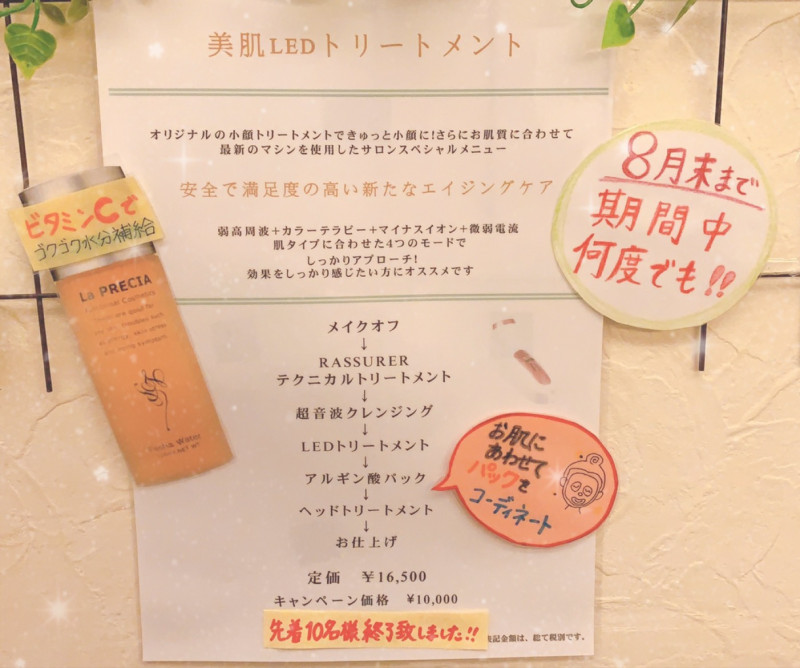 美肌LEDトリートメント
オリジナルの小顔トリートメントできゅっと小顔に!さらにお肌質に合わせて
最新のマシンを使用したサロンスペシャルメニュー
安全で満足度の高い新たなエイジングケア
弱高周波+カラーテラピー+マイナスイオン+微弱電流
肌タイプに合わせた4つのモードで
しっかりアプローチ!
効果をしっかり感じたい方にオススメです
8月末まで
期間中
何度でも!!
ビタミンCで
ゴクゴク水分補給
La PRECIA
メイクオフ
↓
RASSURER
テクニカルトリートメント
↓
超音波クレンジング
↓
LEDトリートメント
↓
アルギン酸パック
↓
ヘッドトリートメント
↓
お仕上げ
お肌に
あわせて
パックを
コーディネート
定価 ¥16,500
キャンペーン価格 ¥10,000
先着10名様終了致しました!!
表記金額は、総て税別です。